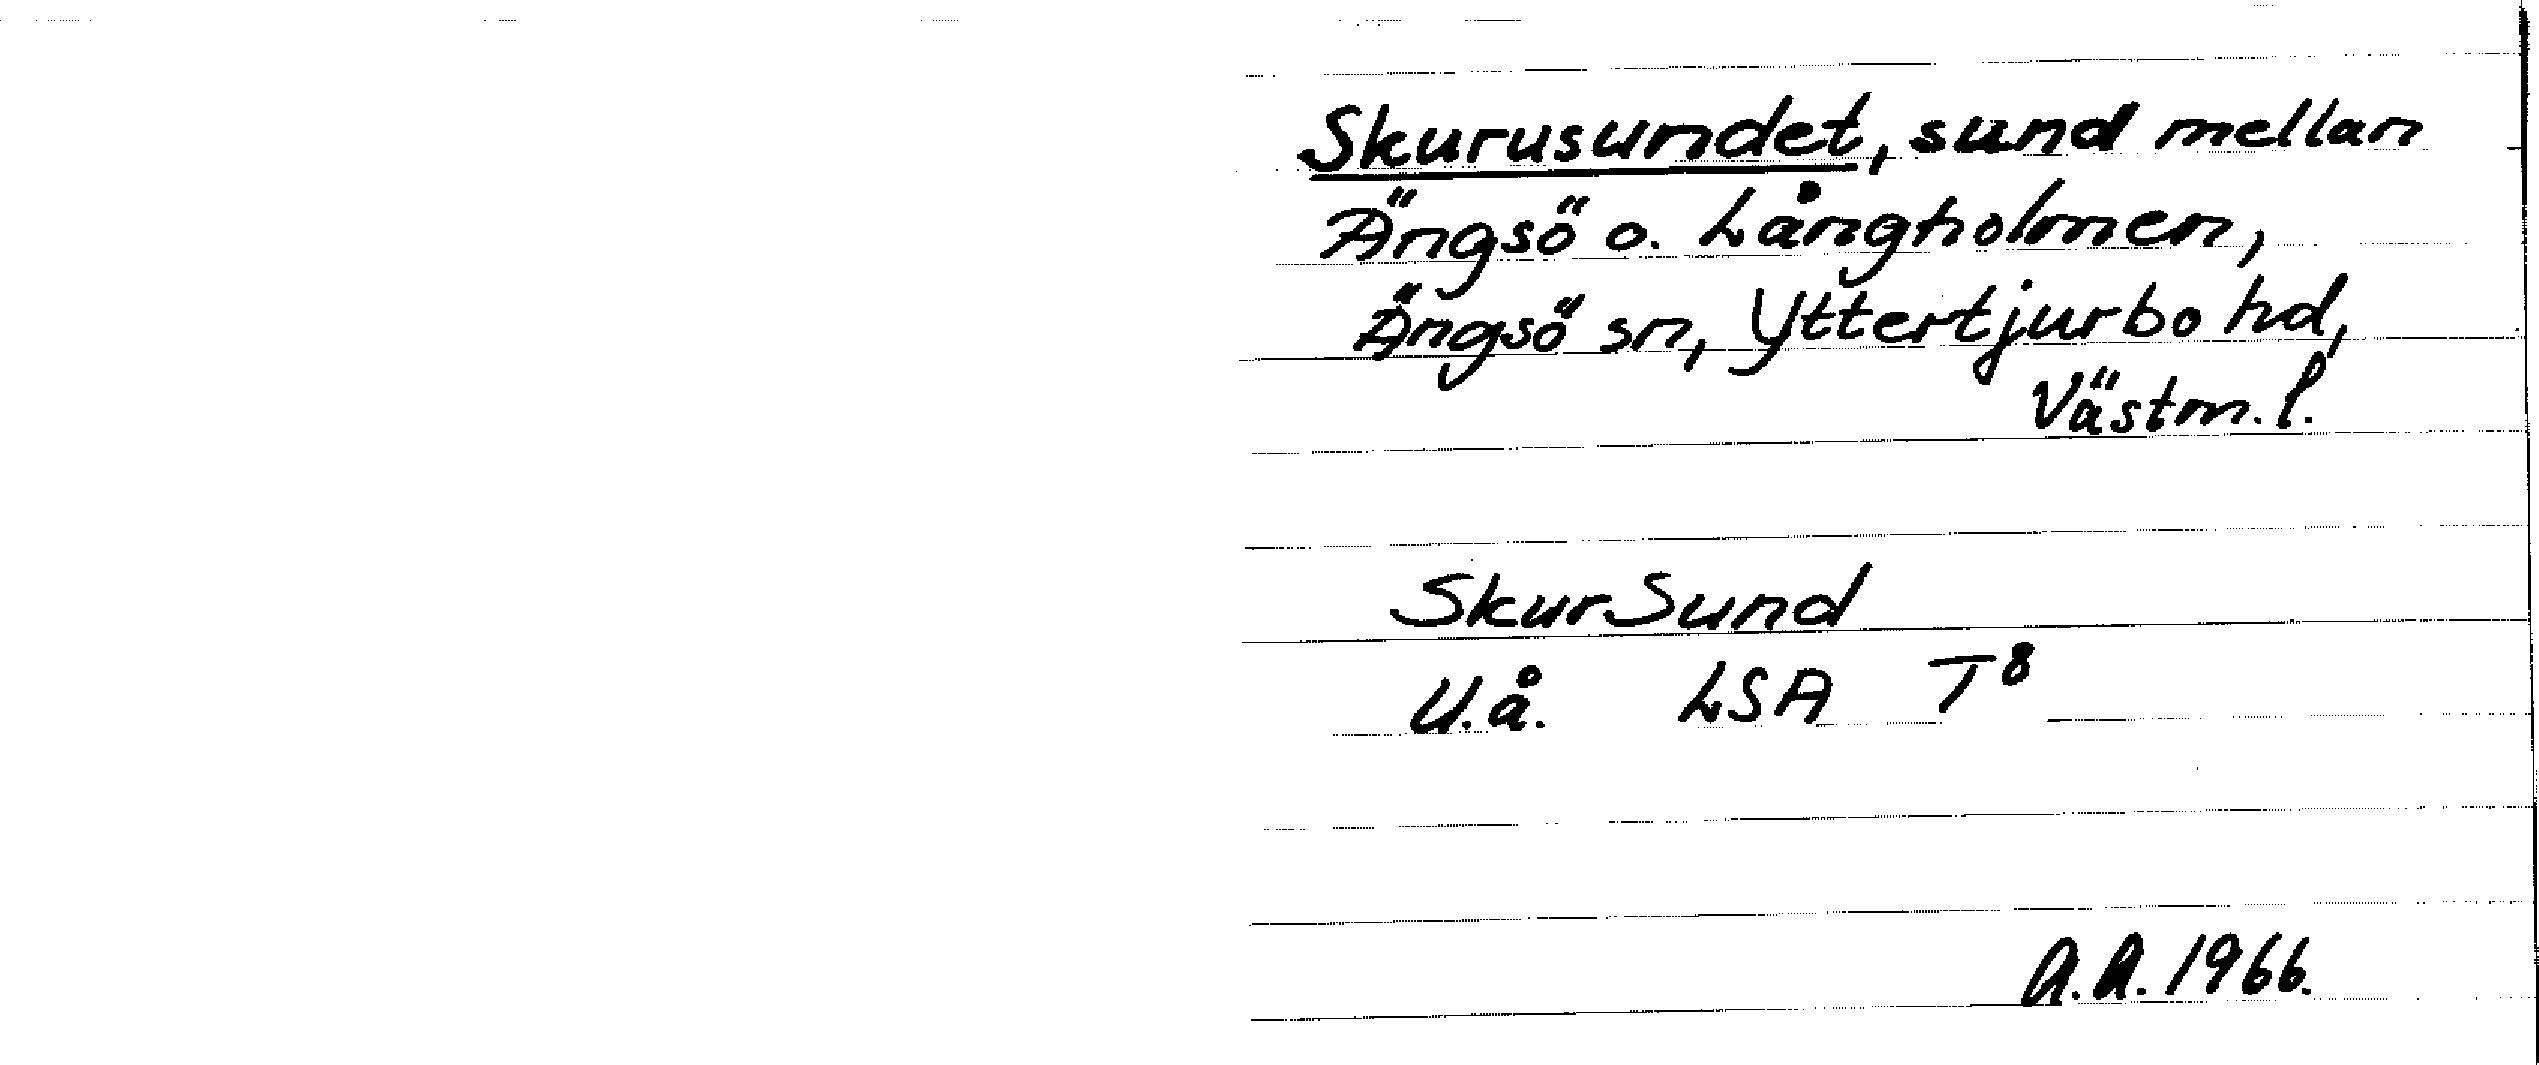 Skurusundet, sund mellan
Ängsö o. Långholmen,
Ängsö sn, Yttertjurbo hd,
Västm. l.
SkurSund
U.å. LSA T8
A.A. 1966.